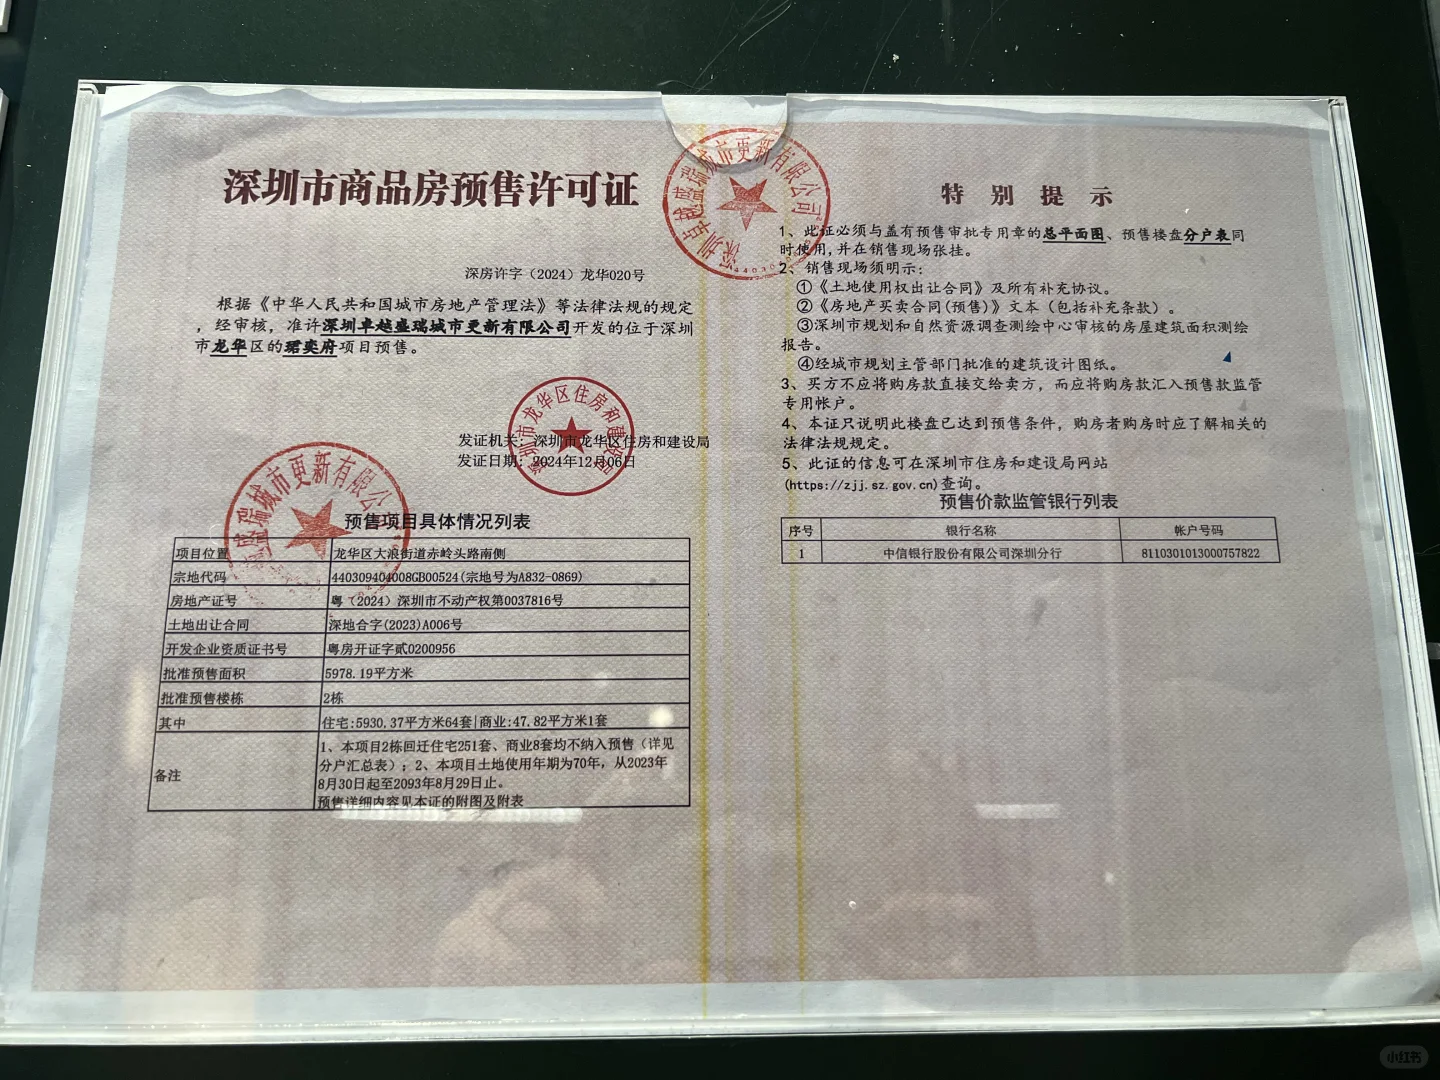 深圳市商品房预售许可证
深房许字（2024）龙华020号
根据《中华人民共和国城市房地产管理法》等法律法规的规定
，经审核，准许深圳卓越盛瑞城市更新有限公司开发的位于深圳
市龙华区的珺奕府项目预售。
发证机关：深圳市龙华区住房和建设局
发证日期：2024年12月06日
深圳市龙华区住房和建设局
盛瑞城市更新有限公司
预售项目具体情况列表
项目位置 龙华区大浪街道赤岭头路南侧
宗地代码 440309404008GB00524(宗地号为A832-0869)
房地产证号 粤（2024）深圳市不动产权第0037816号
土地出让合同 深地合字(2023)A006号
开发企业资质证书号 粤房开证字贰0200956
批准预售面积 5978.19平方米
批准预售楼栋 2栋
其中 住宅:5930.37平方米64套|商业:47.82平方米1套
备注 1、本项目2栋回迁住宅251套、商业8套均不纳入预售（详见
分户汇总表）；2、本项目土地使用年期为70年，从2023年
8月30日起至2093年8月29日止。
预售详细内容见本证的附图及附表
深圳卓越盛瑞城市更新有限公司
特别提示
1、此证必须与盖有预售审批专用章的总平面图、预售楼盘分户表同
时使用,并在销售现场张挂。
2、销售现场须明示：
①《土地使用权出让合同》及所有补充协议。
②《房地产买卖合同(预售)》文本（包括补充条款）。
③深圳市规划和自然资源调查测绘中心审核的房屋建筑面积测绘
报告。
④经城市规划主管部门批准的建筑设计图纸。
3、买方不应将购房款直接交给卖方，而应将购房款汇入预售款监管
专用帐户。
4、本证只说明此楼盘已达到预售条件，购房者购房时应了解相关的
法律法规规定。
5、此证的信息可在深圳市住房和建设局网站
(https://zjj.sz.gov.cn)查询。
预售价款监管银行列表
序号 银行名称 帐户号码
1 中信银行股份有限公司深圳分行 8110301013000757822
小红书